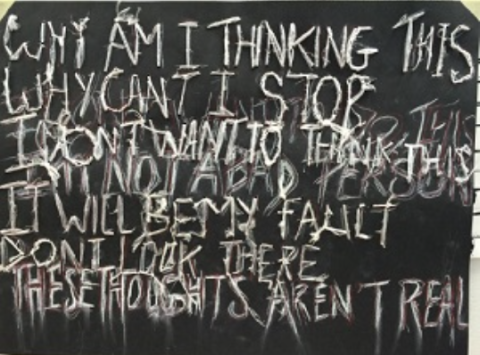 WHY AM I THINKING THIS
WHY CANT I STOP
I DON'T WANT TO THINK THIS
I'M NOT A BAD PERSON
IT WILL BE MY FAULT
DONT LOOK THERE
THESE THOUGHTS AREN'T REAL